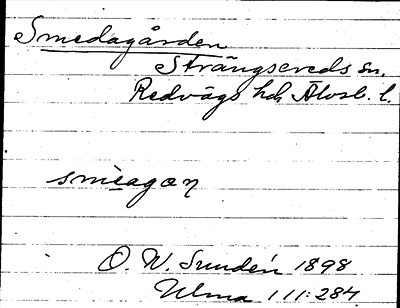 Smedagården
Strängsereds sn.
Redvägs hd, Älvsb. l.
smèagaꞃ
O. W. Sundén 1898
Ulma 111:284